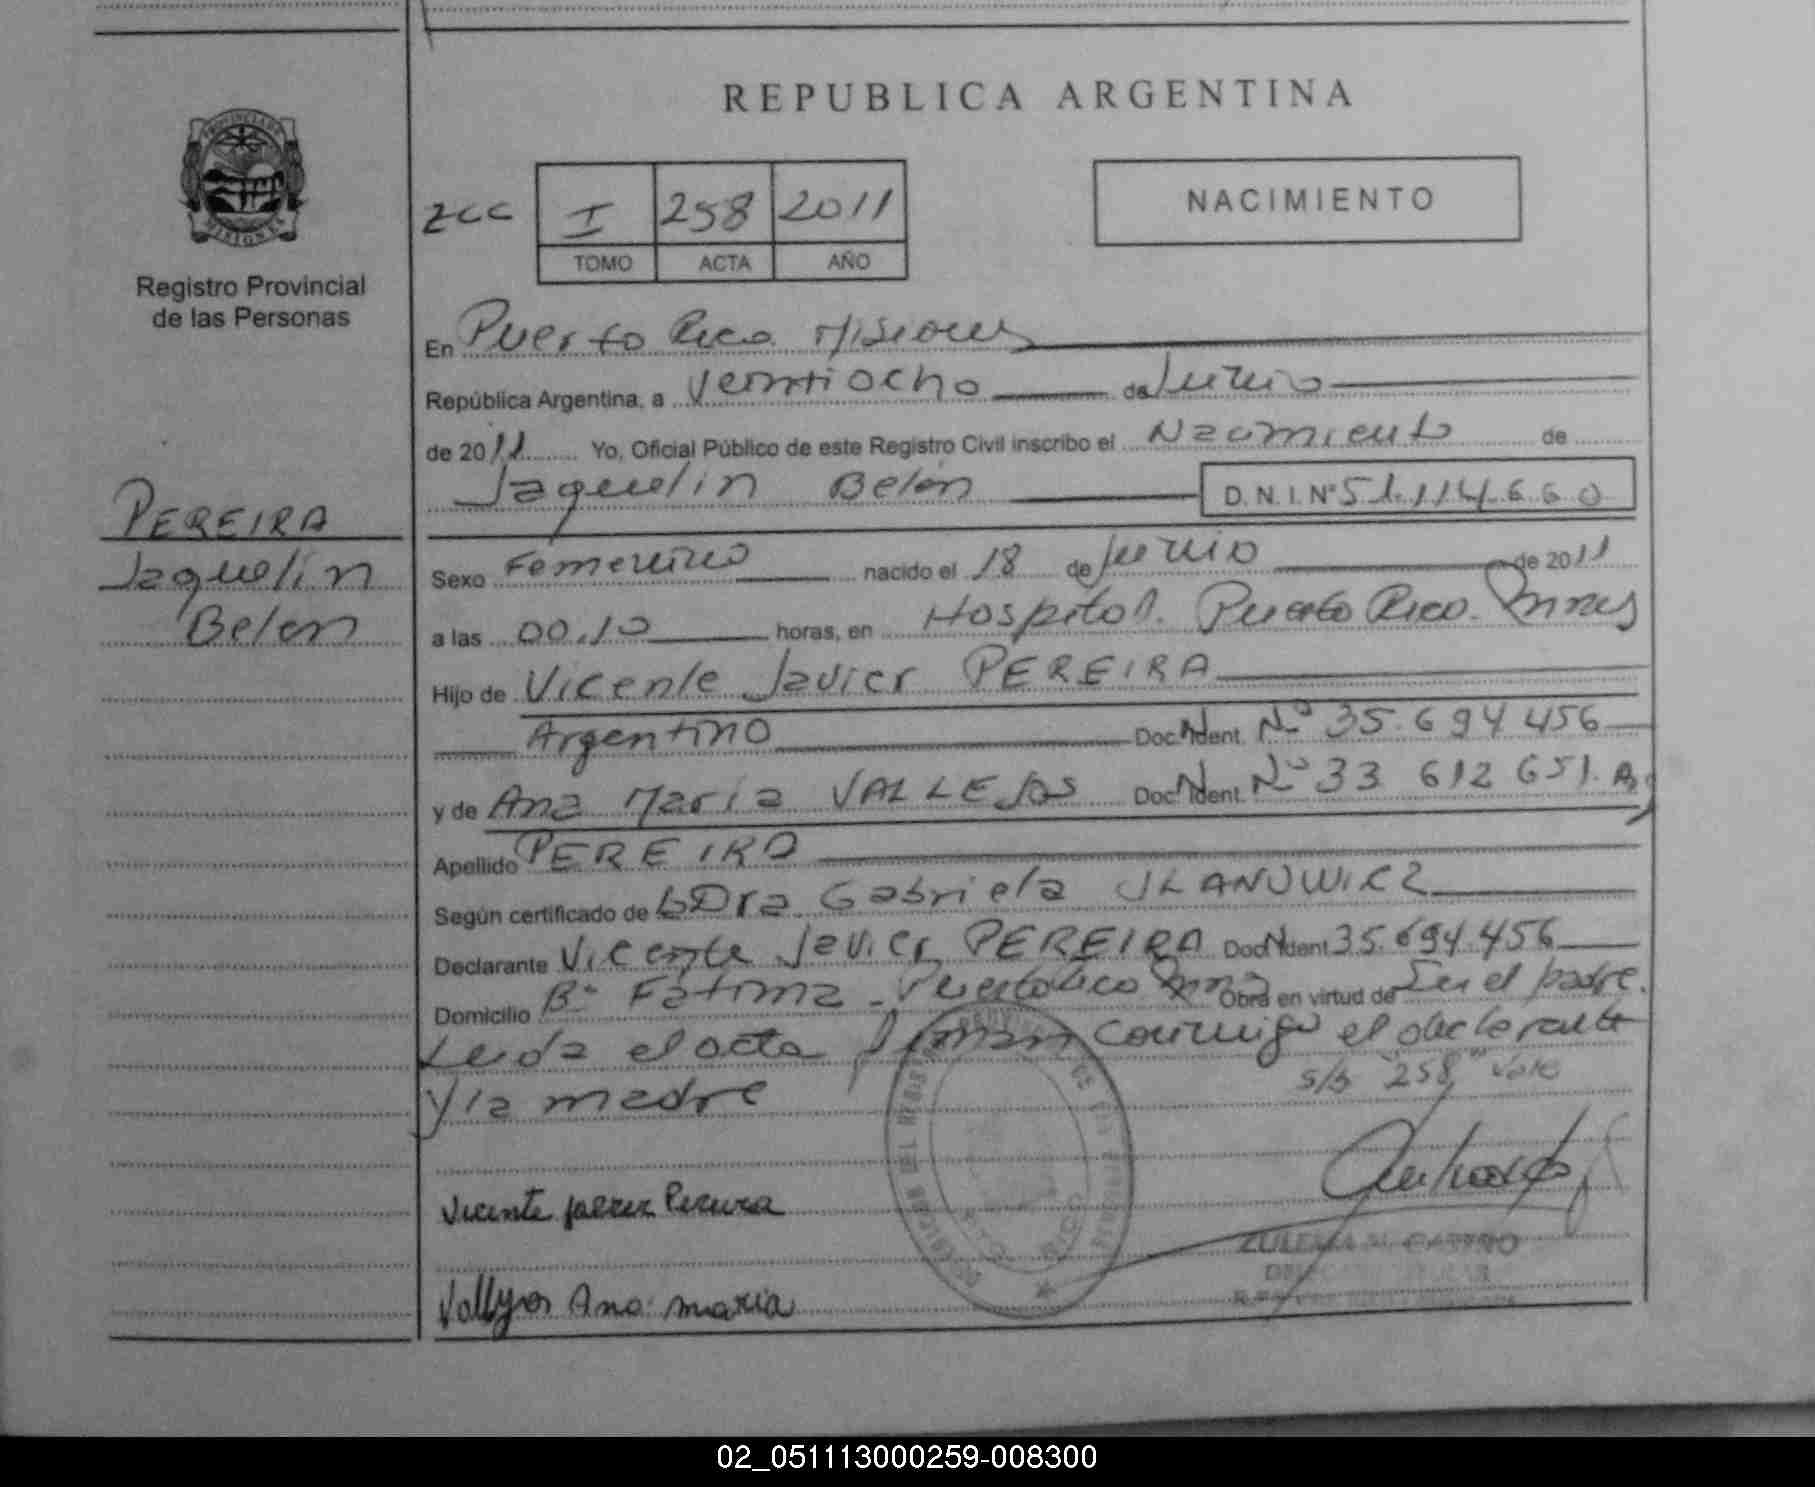 REPUBLICA ARGENTINA
PROVINCIA DE
MISIONES
Registro Provincial
de las Personas
ZCC I 258 2011
TOMO ACTA AÑO
NACIMIENTO
En Puerto Rico Misiones
República Argentina, a Veintiocho de Junio
de 2011 Yo, Oficial Público de este Registro Civil inscribo el Nacimiento de
Jaquelin Belén D.N.I.Nº 51.114.660
PEREIRA
Jaquelin
Belen
Sexo Femenino nacido el 18 de Junio de 2011
a las 00.10 horas, en Hospital. Puerto Rico. Mnes
Hijo de Vicente Javier PEREIRA
Argentino Doc. Ident. Nº 35.694.456
y de Ana Maria VALLEJOS Doc. Ident. Nº 33 612 651. Arg
Apellido PEREIRA
Según certificado de Dra Gabriela
Declarante Vicente Javier PEREIRA Doc. Ident 35.694.456
Domicilio Bº Fatima - Puerto Rico Mnes Obra en virtud de Ser el padre.
Leida el acta firman conmigo el declarante
y la madre s/b "258" Vale
Vicente Javier Pereira
Vallejos Ana maria
ZULEMA CASTRO
02_051113000259-008300